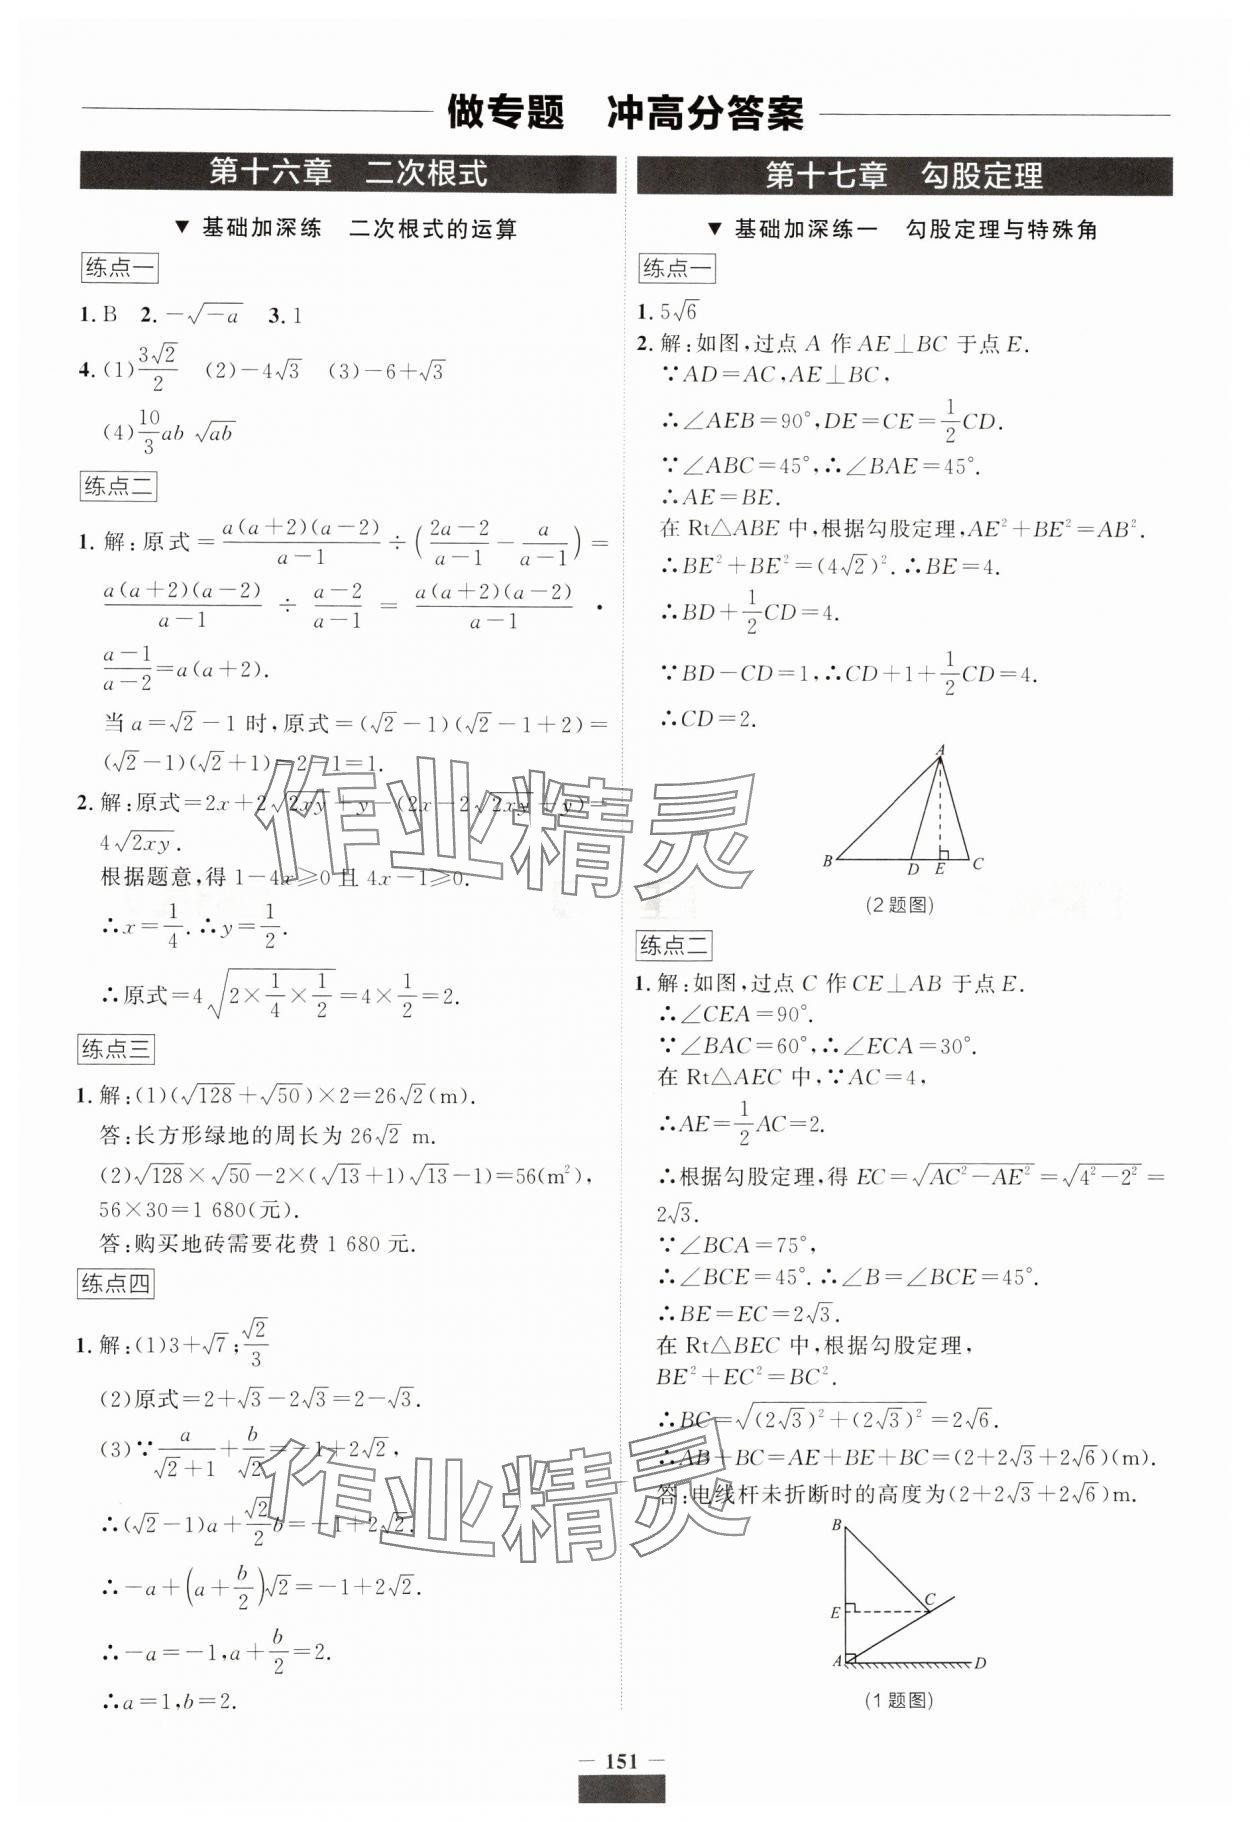 做专题 冲高分答案
第十六章 二次根式
▼ 基础加深练 二次根式的运算
练点一
1. B 2. -√(-a) 3. 1
4. (1) 3√2/2 (2) -4√3 (3) -6+√3
(4) 10/3 ab √(ab)
练点二
1. 解:原式=a(a+2)(a-2)/(a-1)÷((2a-2)/(a-1)-a/(a-1))=
a(a+2)(a-2)/(a-1) ÷ (a-2)/(a-1) = a(a+2)(a-2)/(a-1) ·
(a-1)/(a-2)=a(a+2).
当 a=√2-1 时,原式=(√2-1)(√2-1+2)=
(√2-1)(√2+1)=2-1=1.
2. 解:原式=2x+2√(2xy)+y-(2x-2√(2xy)+y)=
4√(2xy).
根据题意,得 1-4x≥0 且 4x-1≥0.
∴x=1/4.∴y=1/2.
∴原式=4√(2×1/4×1/2)=4×1/2=2.
练点三
1. 解:(1)(√128+√50)×2=26√2(m).
答:长方形绿地的周长为 26√2 m.
(2)√128×√50-2×(√13+1)√13-1)=56(m²),
56×30=1 680(元).
答:购买地砖需要花费 1 680 元.
练点四
1. 解:(1)3+√7;√2/3
(2)原式=2+√3-2√3=2-√3.
(3)∵a/(√2+1)+b/√2=-1+2√2,
∴(√2-1)a+√2/2 b=-1+2√2.
∴-a+(a+b/2)√2=-1+2√2.
∴-a=-1,a+b/2=2.
∴a=1,b=2.
第十七章 勾股定理
▼ 基础加深练一 勾股定理与特殊角
练点一
1. 5√6
2. 解:如图,过点 A 作 AE⊥BC 于点 E.
∵AD=AC,AE⊥BC,
∴∠AEB=90°,DE=CE=1/2CD.
∵∠ABC=45°,∴∠BAE=45°.
∴AE=BE.
在 Rt△ABE 中,根据勾股定理,AE²+BE²=AB².
∴BE²+BE²=(4√2)².∴BE=4.
∴BD+1/2CD=4.
∵BD-CD=1,∴CD+1+1/2CD=4.
∴CD=2.
A
B D E C
(2题图)
练点二
1. 解:如图,过点 C 作 CE⊥AB 于点 E.
∴∠CEA=90°.
∵∠BAC=60°,∴∠ECA=30°.
在 Rt△AEC 中,∵AC=4,
∴AE=1/2AC=2.
∴根据勾股定理,得 EC=√(AC²-AE²)=√(4²-2²)=
2√3.
∵∠BCA=75°,
∴∠BCE=45°.∴∠B=∠BCE=45°.
∴BE=EC=2√3.
在 Rt△BEC 中,根据勾股定理,
BE²+EC²=BC².
∴BC=√((2√3)²+(2√3)²)=2√6.
∴AB+BC=AE+BE+BC=(2+2√3+2√6)(m).
答:电线杆未折断时的高度为(2+2√3+2√6)m.
B
E C
A D
(1题图)
151
作业精灵
作业精灵